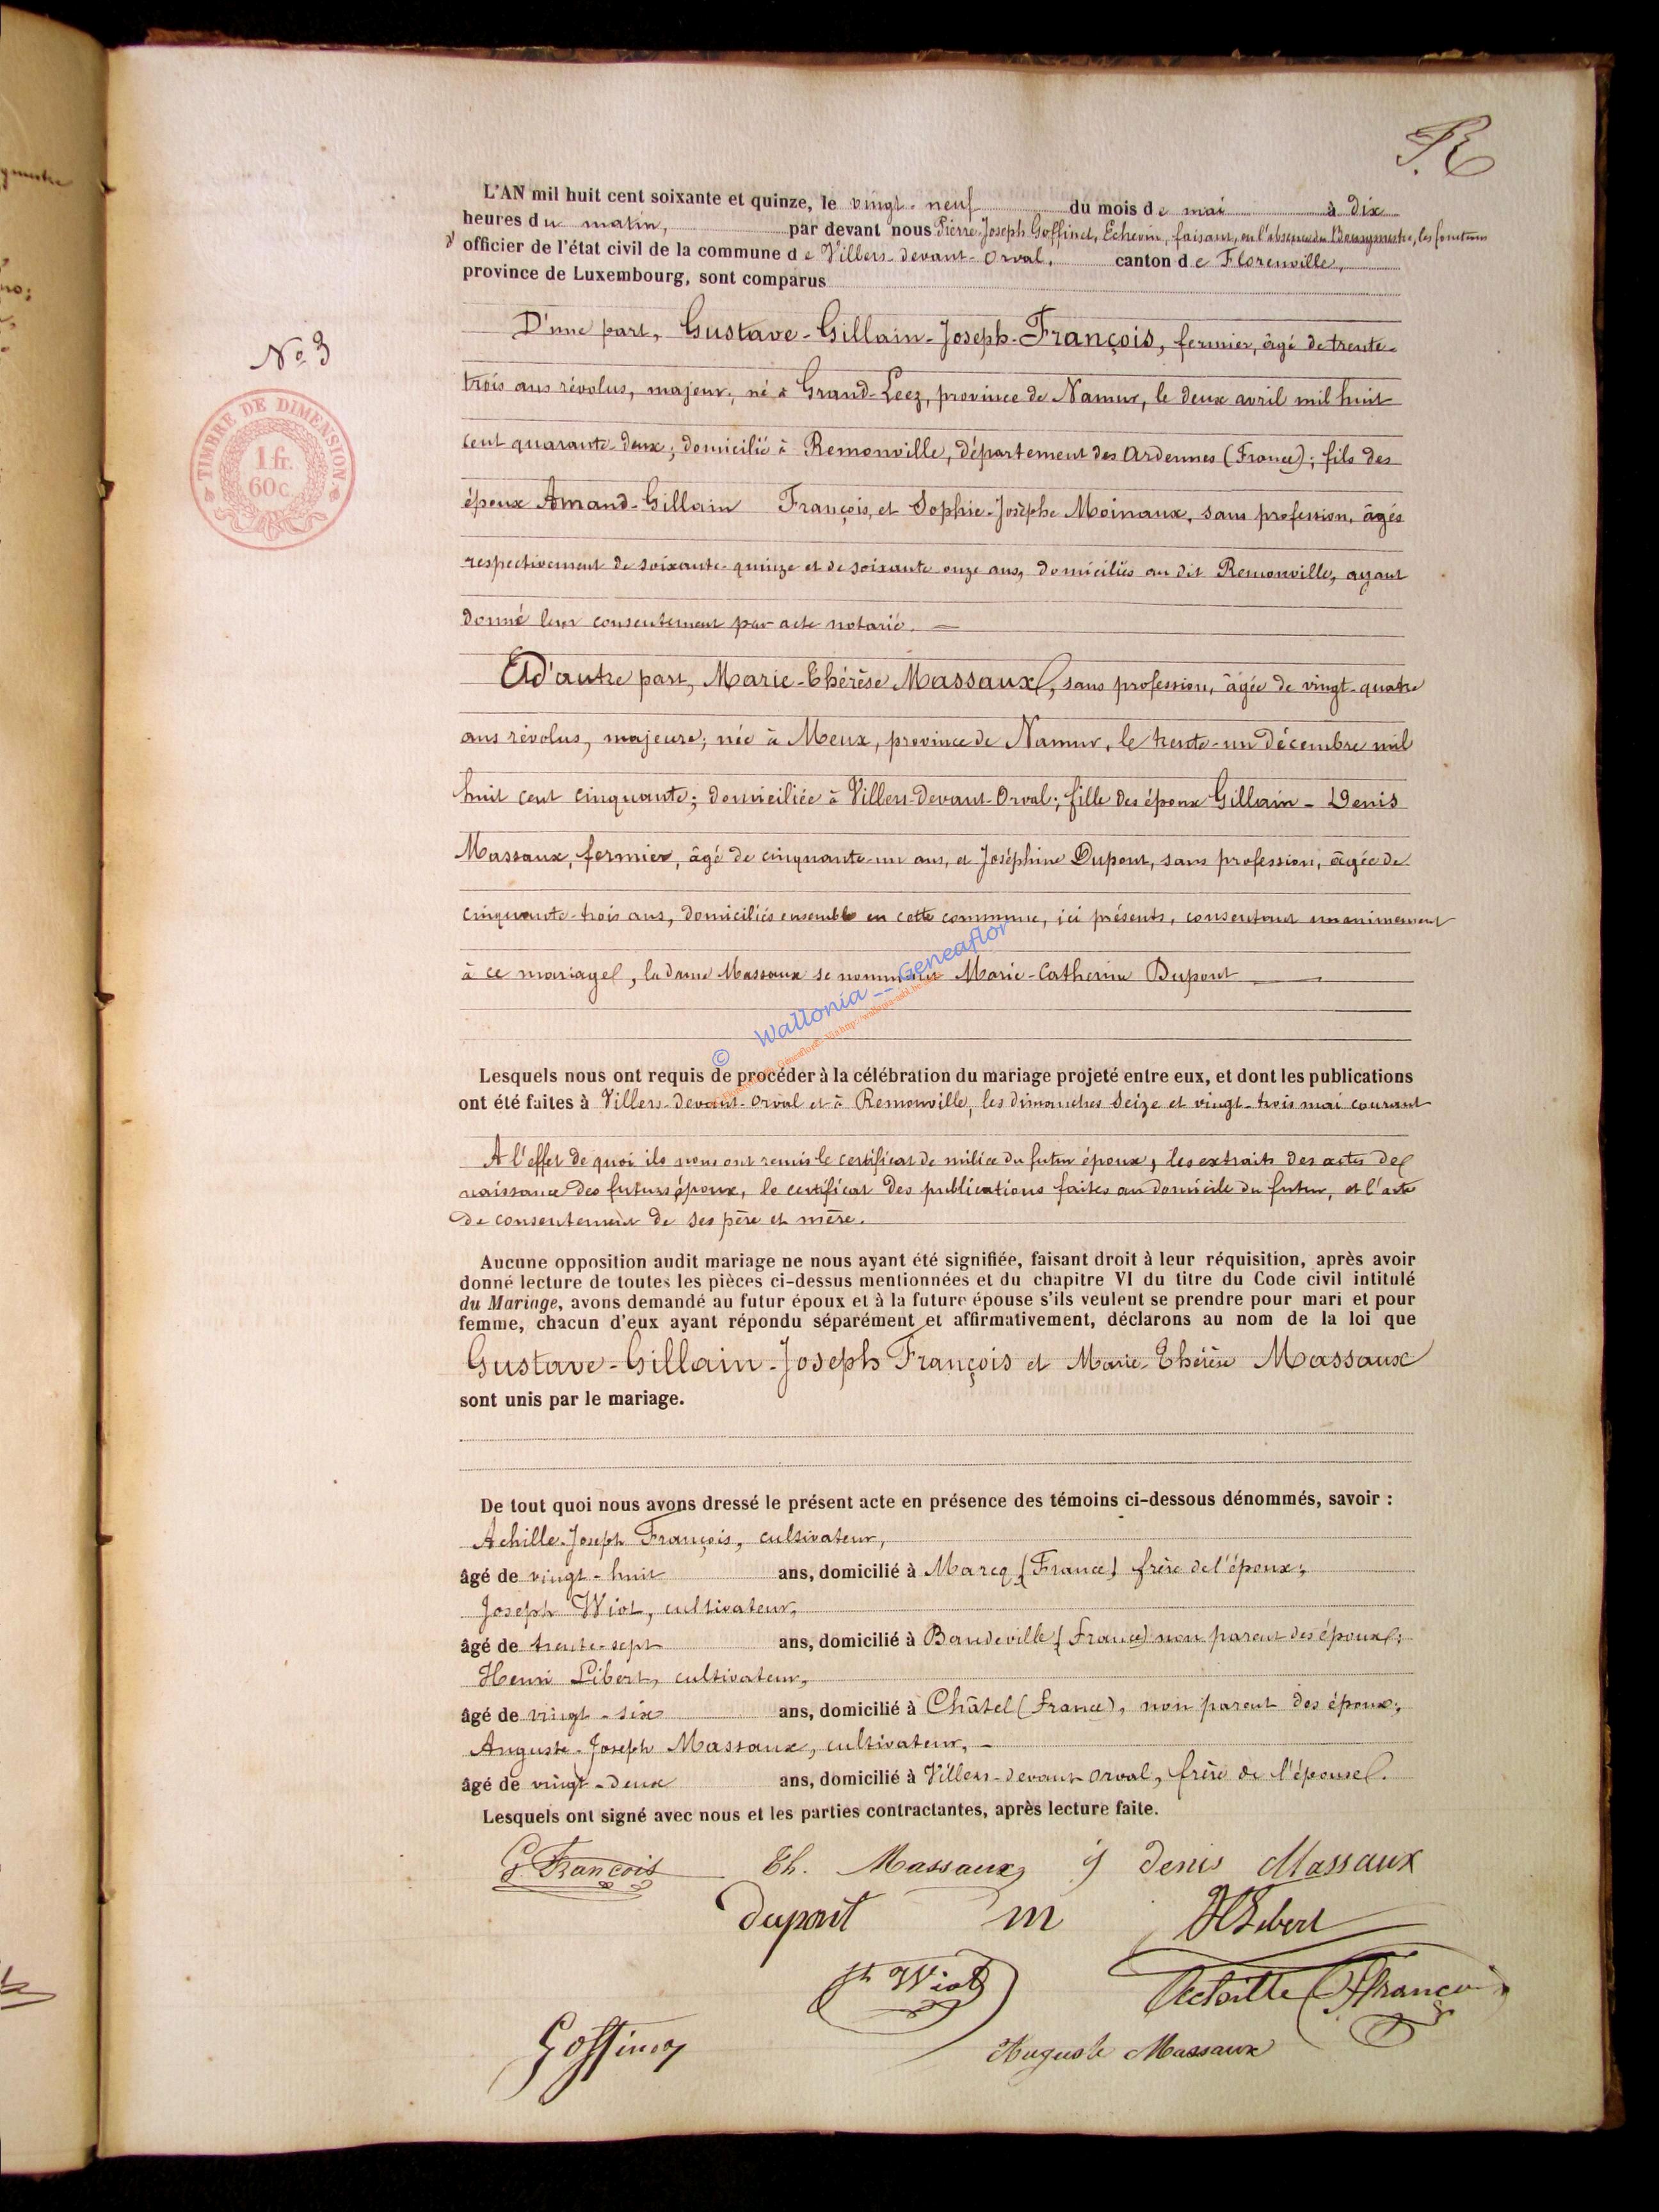 R
L'AN mil huit cent soixante et quinze, le vingt-neuf du mois de mai à dix
heures du matin, par devant nous Pierre-Joseph Goffinet, Echevin, faisant, en l'absence du Bourgmestre, les fonctions
d'officier de l'état civil de la commune de Villers-devant-Orval, canton de Florenville,
province de Luxembourg, sont comparus
D'une part, Gustave-Gillain-Joseph-François, fermier, âgé de trente-
No 3
trois ans révolus, majeur; né à Grand-Leez, province de Namur, le deux avril mil huit
TIMBRE DE DIMENSION
1 fr.
60c.
cent quarante-deux; domicilié à Remonville, département des Ardennes (France); fils des
époux Amand-Gillain François, et Sophie-Josèphe Moinaux, sans profession, âgés
respectivement de soixante-quinze et de soixante onze ans, domiciliés au dit Remonville, ayant
donné leur consentement par acte notarié.
Et d'autre part, Marie-Thérèse Massaux, sans profession, âgée de vingt-quatre
ans révolus, majeure; née à Meux, province de Namur, le trente-un décembre mil
huit cent cinquante; domiciliée à Villers-devant-Orval; fille des époux Gillain-Denis
Massaux, fermier, âgé de cinquante-un ans, et Joséphine Dupont, sans profession, âgée de
cinquante-trois ans, domiciliés ensemble en cette commune, ici présents, consentant unanimement
à ce mariage, la dame Massaux se nommant Marie-Catherine Dupont
© Wallonia -- Geneaflor
Lesquels nous ont requis de procéder à la célébration du mariage projeté entre eux, et dont les publications
ont été faites à Villers-devant-Orval et à Remonville, les dimanches seize et vingt-trois mai courant
A l'effet de quoi ils nous ont remis le certificat de milice du futur époux, les extraits des actes de
naissance des futurs époux, le certificat des publications faites au domicile du futur, et l'acte
de consentement de ses père et mère.
Aucune opposition audit mariage ne nous ayant été signifiée, faisant droit à leur réquisition, après avoir
donné lecture de toutes les pièces ci-dessus mentionnées et du chapitre VI du titre du Code civil intitulé
du Mariage, avons demandé au futur époux et à la future épouse s'ils veulent se prendre pour mari et pour
femme, chacun d'eux ayant répondu séparément et affirmativement, déclarons au nom de la loi que
Gustave-Gillain-Joseph François et Marie-Thérèse Massaux
sont unis par le mariage.
De tout quoi nous avons dressé le présent acte en présence des témoins ci-dessous dénommés, savoir :
Achille-Joseph François, cultivateur,
âgé de vingt-huit ans, domicilié à Marcq (France) frère de l'époux;
Joseph Wiot, cultivateur,
âgé de trente-sept ans, domicilié à Bandeville (France) non parent des époux;
Henri Libert, cultivateur,
âgé de vingt-six ans, domicilié à Châtel (France), non parent des époux;
Auguste-Joseph Massaux, cultivateur,
âgé de vingt-deux ans, domicilié à Villers-devant-Orval, frère de l'épouse.
Lesquels ont signé avec nous et les parties contractantes, après lecture faite.
G. François Th. Massaux g denis Massaux
dupont m H Libert
Jh Wiot Achille François
Goffinet Auguste Massaux